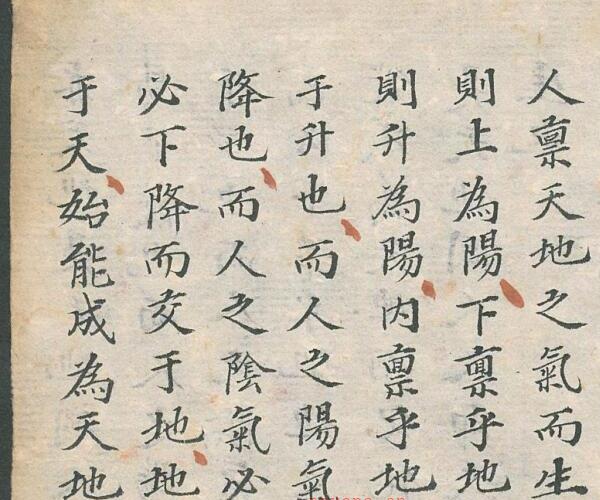 人禀天地之氣而生
則上為陽下禀乎地
則升為陽内禀乎地
于升也而人之陽氣
降也而人之陰氣必
必下降而交于地地
于天始能成為天地